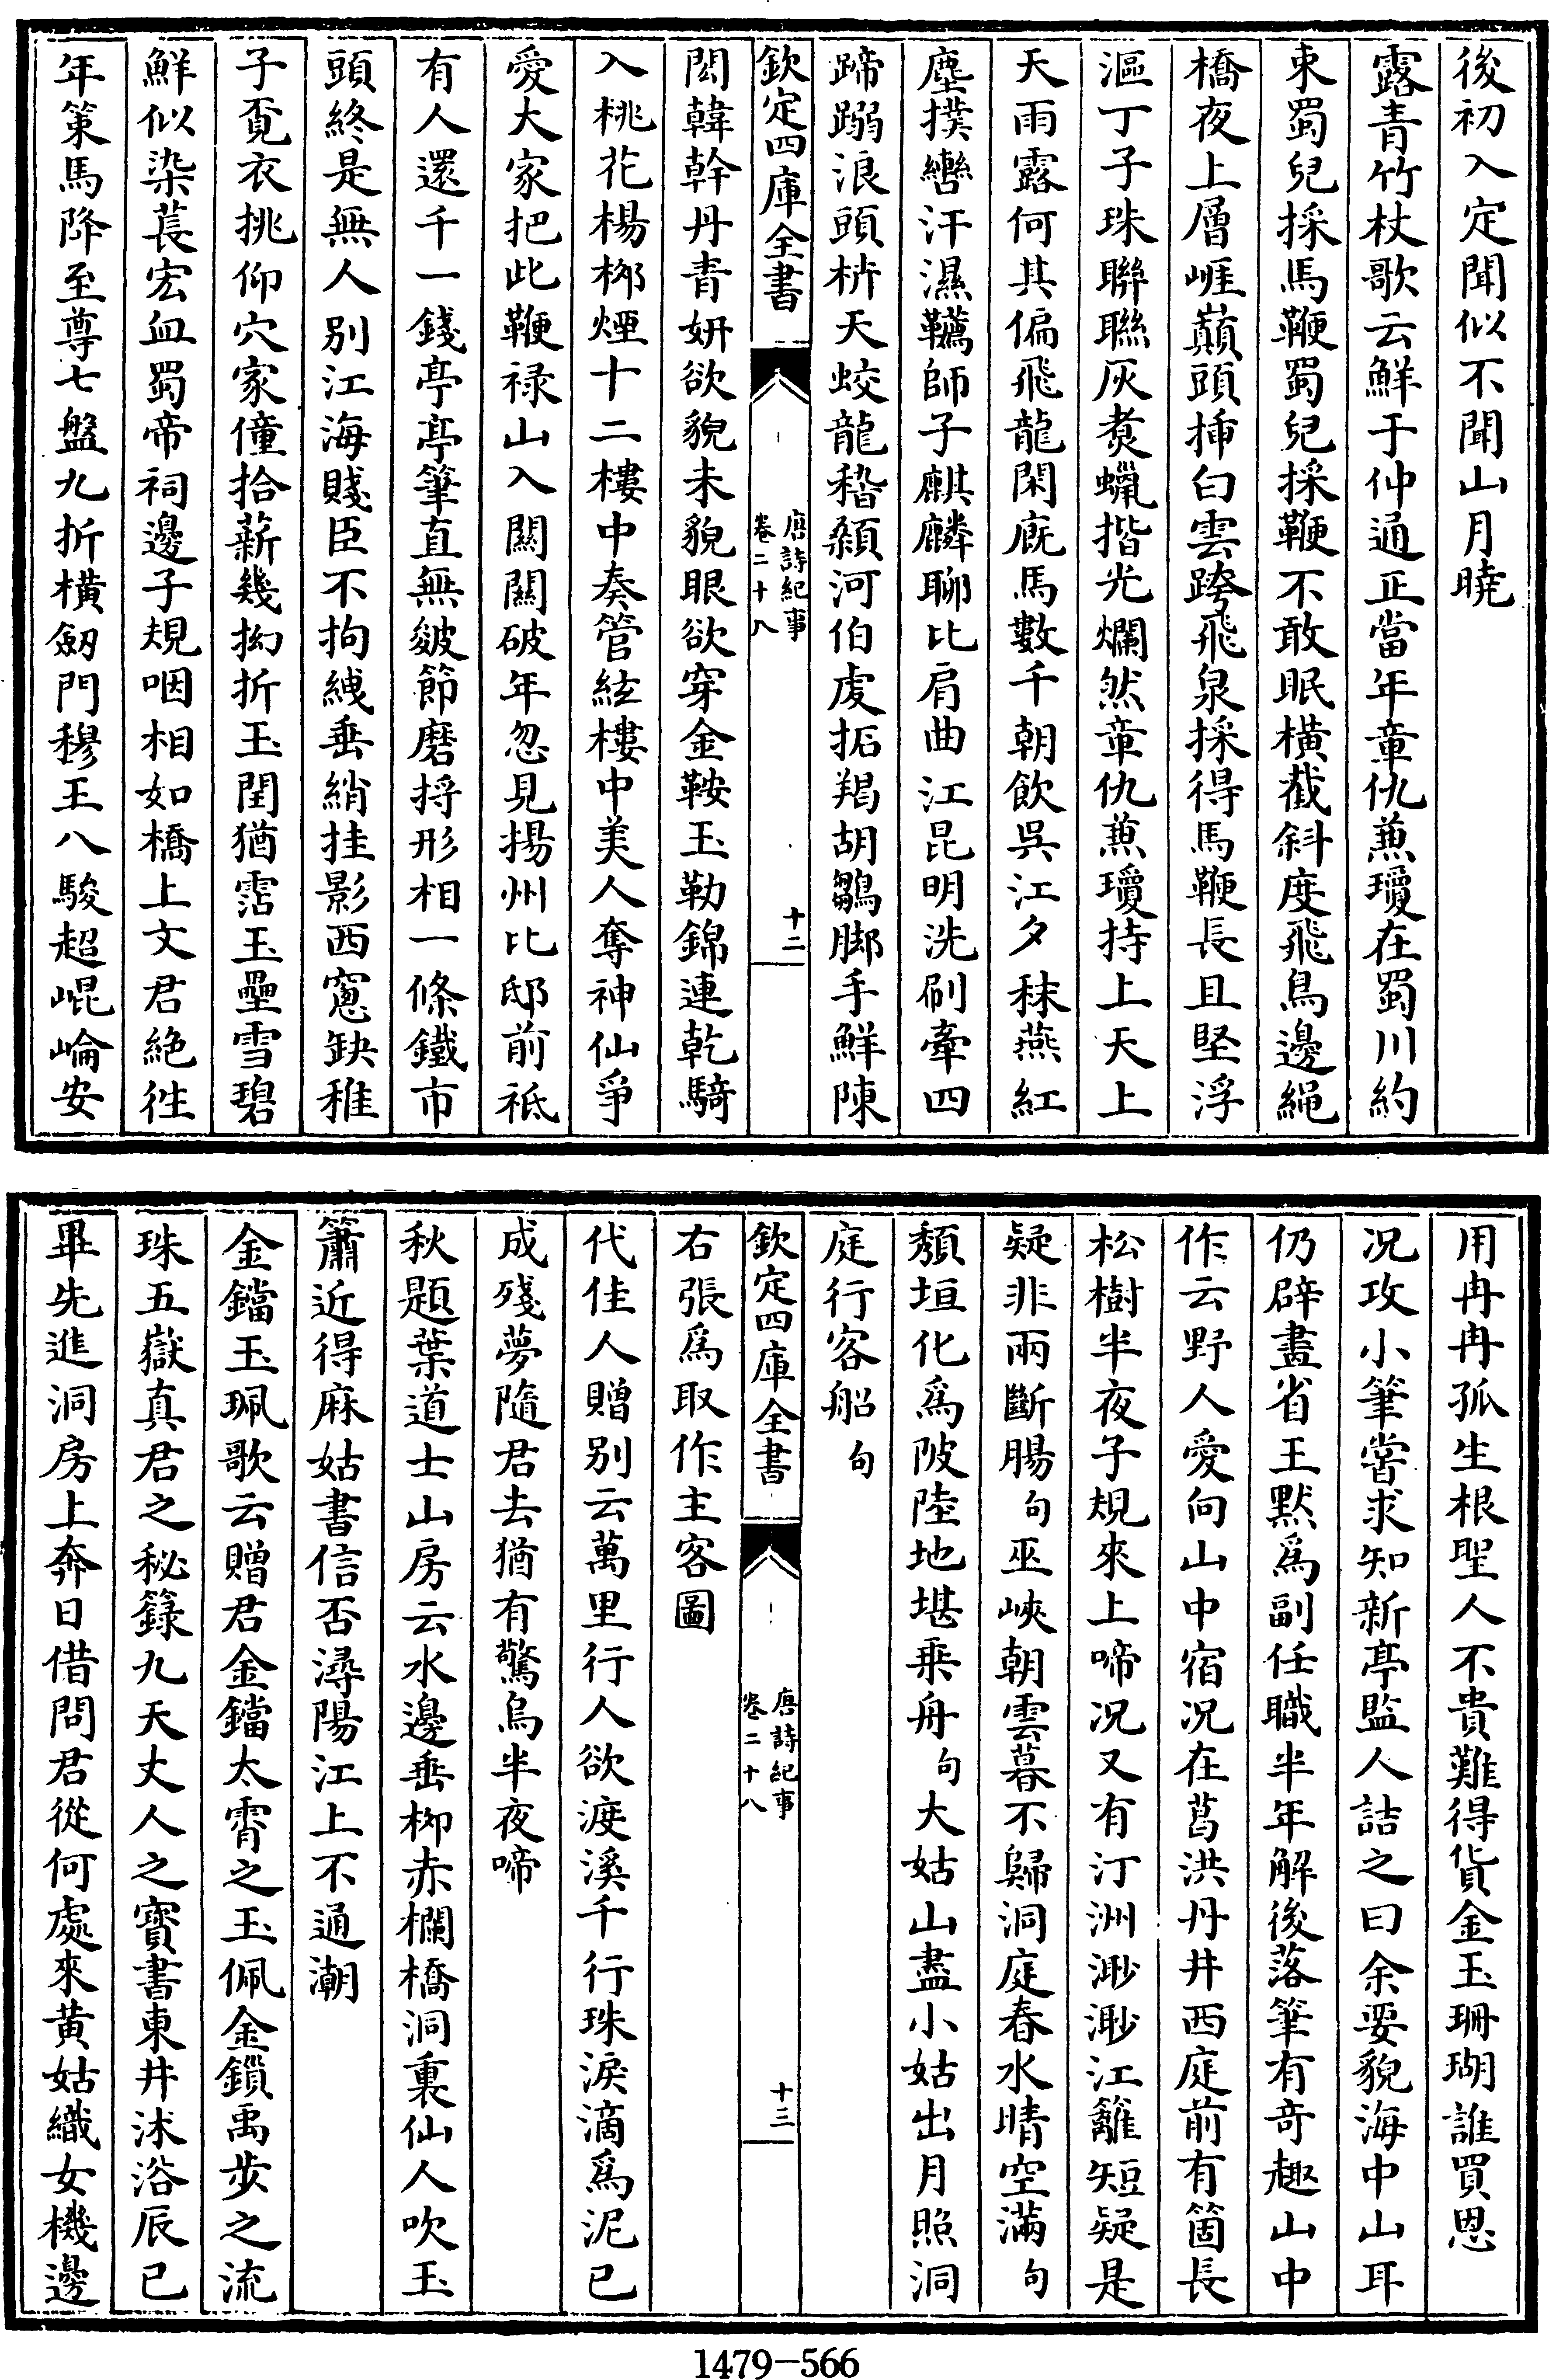 後初入定聞似不聞山月曉
露青竹杖歌云鮮于仲通正當年章仇兼瓊在蜀川約
束蜀兒採馬鞭蜀兒採鞭不敢眠橫截斜度飛鳥邊繩
橋夜上層崕巔頭揷白雲跨飛泉採得馬鞭長且堅浮
漚丁子珠聯聯灰煑蠟揩光爛然章仇兼瓊持上天上
天雨露何其偏飛龍閑廐馬數千朝飲吳江夕秣燕紅
塵撲轡汗濕韉師子麒麟聊比肩曲江昆明洗刷牽四
蹄踏浪頭枿天蛟龍稽顙河伯虔拓羯胡鶵脚手鮮陳
欽定四庫全書
唐詩紀事
卷二十八
十二
閎韓幹丹青妍欲貌未貌眼欲穿金鞍玉勒錦連乾騎
入桃花楊柳煙十二樓中奏管絃樓中美人奪神仙爭
愛大家把此鞭祿山入關關破年忽見揚州北邸前祇
有人還千一錢亭亭筆直無皴節磨捋形相一條鐵市
頭終是無人別江海賤臣不拘紲垂綃挂影西窻缺稚
子覔衣挑仰穴家僮拾薪幾拗折玉閏猶霑玉壘雪碧
鮮似染萇宏血蜀帝祠邊子規咽相如橋上文君絕徃
年策馬降至尊七盤九折橫劒門穆王八駿超崐崘安
用冉冉孤生根聖人不貴難得貨金玉珊瑚誰買恩
况攻小筆嘗求知新亭監人詰之曰余要貌海中山耳
仍辟畫省王默爲副任職半年解後落筆有奇趣山中
作云野人愛向山中宿况在葛洪丹井西庭前有箇長
松樹半夜子規來上啼况又有汀洲渺渺江籬短疑是
疑非兩斷腸句巫峽朝雲暮不歸洞庭春水晴空滿句
頽垣化爲陂陸地堪乗舟句大姑山盡小姑出月照洞
庭行客船句
欽定四庫全書
唐詩紀事
卷二十八
十三
右張爲取作主客圖
代佳人贈别云萬里行人欲渡溪千行珠淚滴爲泥已
成殘夢隨君去猶有驚烏半夜啼
秋題葉道士山房云水邊垂柳赤欄橋洞裏仙人吹玉
簫近得麻姑書信否潯陽江上不通潮
金鐺玉珮歌云贈君金鐺太霄之玉佩金鎖禹步之流
珠五嶽真君之秘籙九天丈人之寶書東井沐浴辰已
畢先進洞房上奔日借問君從何處來黄姑織女機邊
1479-566